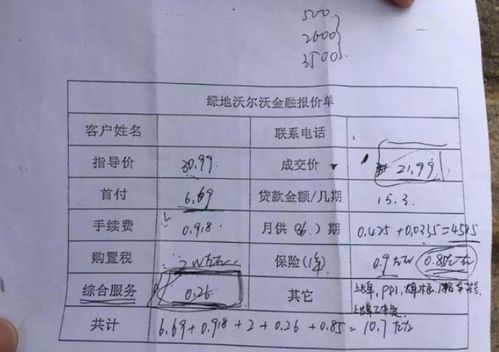 500
2600
3500
绿地沃尔沃金融报价单
客户姓名 联系电话
指导价 30.99 成交价 21.99
首付 6.69 贷款金额/几期 15.3
手续费 0.918 月供(36)期 0.425+0.0335=4585
购置税 2 保险(1年) 0.9 0.85
综合服务 0.26 其它 上牌,PDI,
共计 6.69+0.918+2+0.26+0.85=10.7